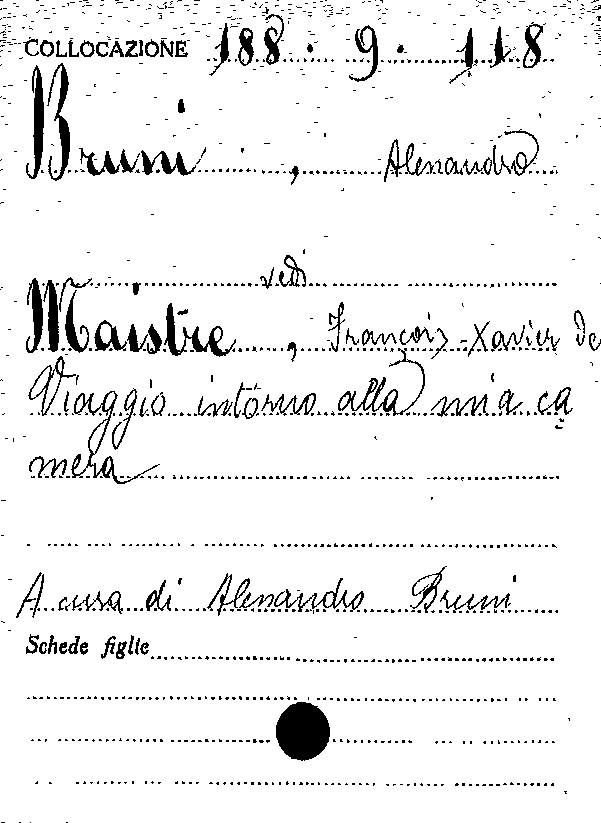 COLLOCAZIONE 188. 9. 118
Bruni, Alessandro
vedi
Maistre, François-Xavier de
Viaggio intorno alla mia ca
mera
A cura di Alessandro Bruni
Schede figlie